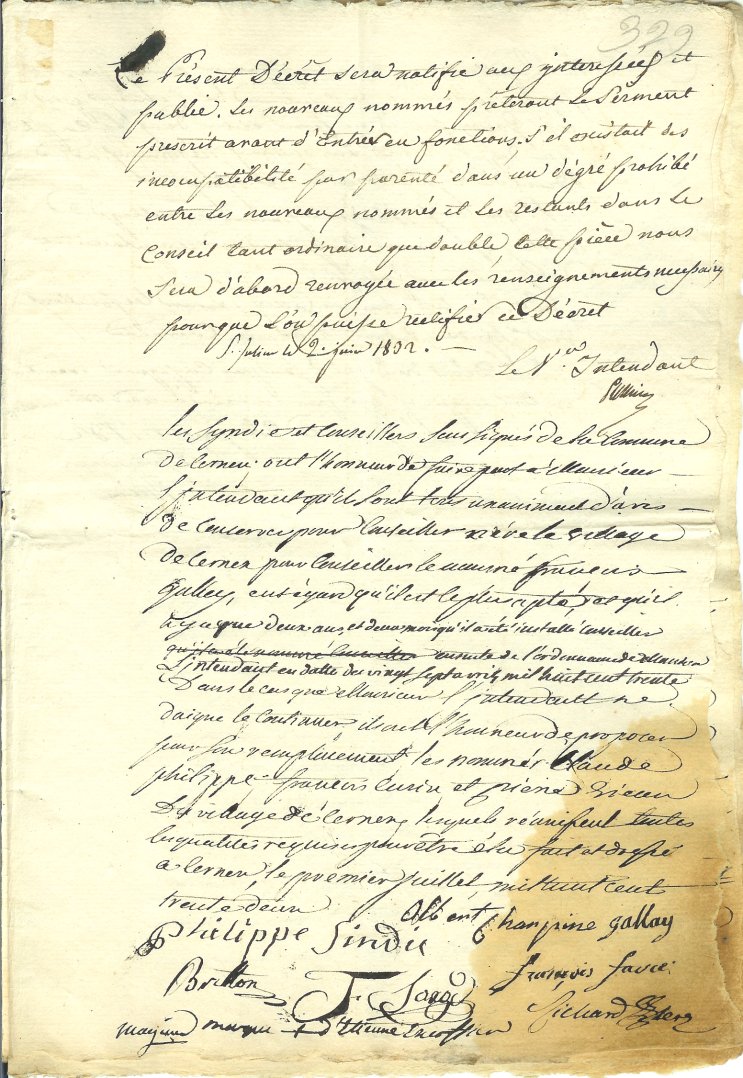 329
Le Présent Décret sera notifié aux interessés et
publié. Les nouveaux nommés prêteront le Serment
prescrit avant d'Entrer en fonctions. S'il existait des
incompatibilité par parenté dans un dégré prohibé
entre les nouveaux nommés et les restants dans le
Conseil tant ordinaire que double cette pièce nous
Sera d'abord renvoyée avec les renseignements necessaires
pour que l'on puisse rectifier ce Décret
S. Julien le 2. juin 1832. —
Le V. Intendant
les Syndic et Conseillers Sousignés de la Commune
de Cernex ont l'honneur de faire part à Monsieur
l'intendant qu'il sont tres unaniment d'avis
de Conserver pour Conseiller le village
de Cernex pour Conseiller le nommé françois
Gallay, eut égard qu'il est le plus apte, et qu'il
n'y a que deux ans, et deux mois qu'il a été installé Conseiller
ensuite de l'ordonnance de Monsieur
L'intendant en datte du vingt Sept avril mil huit cent trente
Dans le cas que Monsieur l'intendant ne
daigne le Continuer ils ont l'honneur de proposer
pour son remplacement les nommés Claude
philippe françois Cusin et
Du village de Cernex lesquels réunissent toutes
les qualités requises pour être élu fait et dressé
a Cernex le premier juillet mil huit cent
trente deux
Albert Chanpine Gallay
Philippe Sindic
Britton
françois favre
marque + d'Etienne
Richard